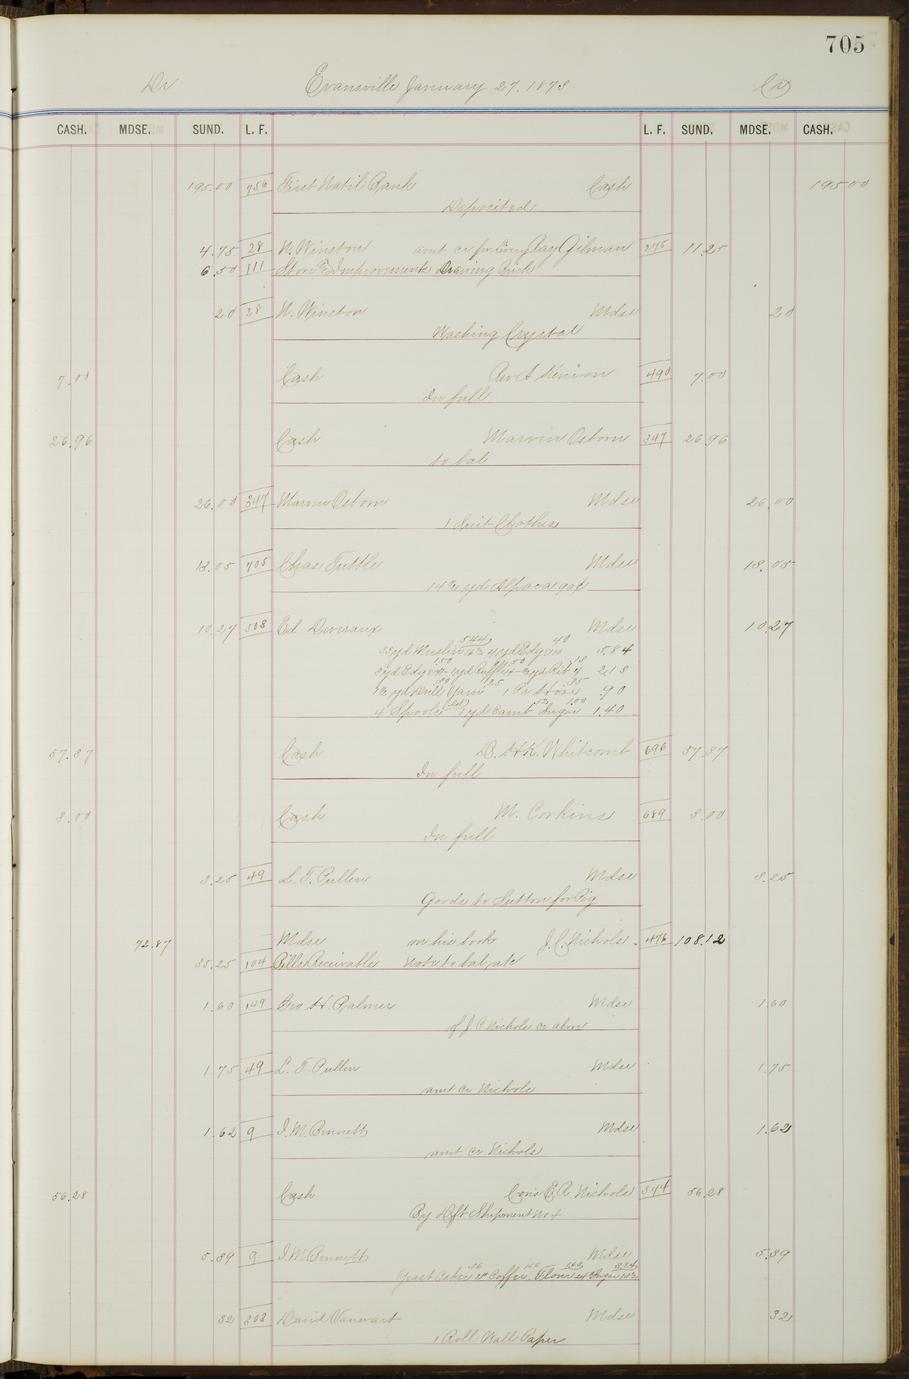 705
Dr Evansville January 27, 1873 Cr
CASH. MDSE. SUND. L. F. L. F. SUND. MDSE. CASH.
195.00 756 First Natil Bank Cash 195 00
Deposited
4.75 28 N. Winston amt cr for Gilman 275 11.25
6.50 111 Store Improvements Drawing
20 28 N. Winston Mdse 20
Washing Crystal
7.00 Cash Rev 490 7.00
In full
26.96 Cash Marvin Osborn 347 26.96
to bal
26.00 347 Marvin Osborn Mdse 26.00
1 Suit Clothes
13.05 705 Chas Tuttle Mdse 13.05
yds Alpaca 90c
10.27 508 Ed Mdse 10.27
544 40
yd Muslin 4 yd Edg 10 5.84
3 yd Edg yd Ruffle yd Rib 2.13
yd Drill Yarn 1 Pr Hose .90
4 Spools 1 yd Camb Sugar 1.40
57.87 Cash Whitcomb 696 57.87
In full
3.00 Cash M. Corkins 689 3.00
In full
3.25 49 L. T. Pullen Mdse 3.25
Goods to Sutton for Pig
72.87 Mdse on his book J. C. Nichols 476 108.12
35.25 104 Bills Receivable Note to bal
1.60 149 Geo H. Palmer Mdse 1.60
of J C Nichols cr above
1.75 49 L. T. Pullen Mdse 1.75
amt cr Nichols
1.62 9 I. M. Bennett Mdse 1.62
amt cr Nichols
56.28 Cash E. A. Nichols 344 56.28
By Dft Shipment No 4
5.39 9 I. M. Bennett Mdse 5.39
Yeast Coffee, Flour Sugar
32 303 David Vanwart Mdse 32
1 Roll Wall Paper